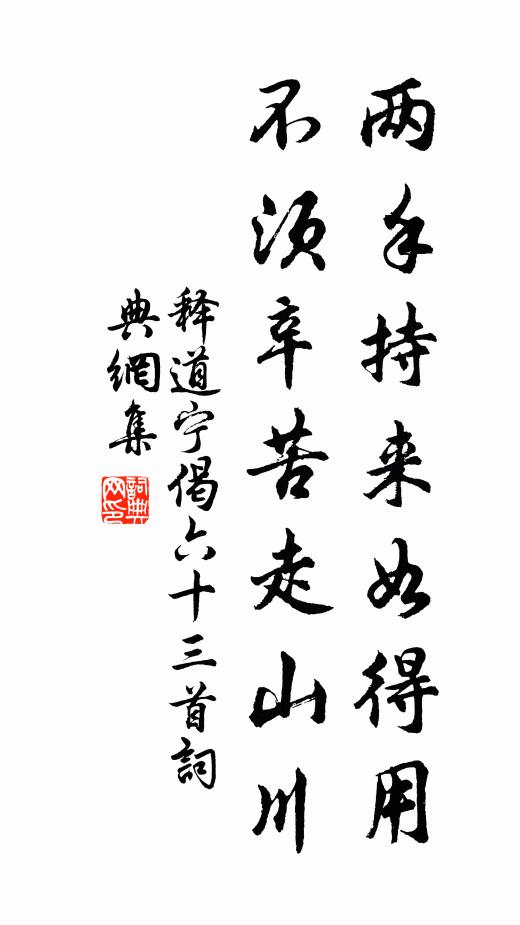 两手持来如得用
不须辛苦走山川
释道宁偈六十三首詞
典網集
詞典
网印